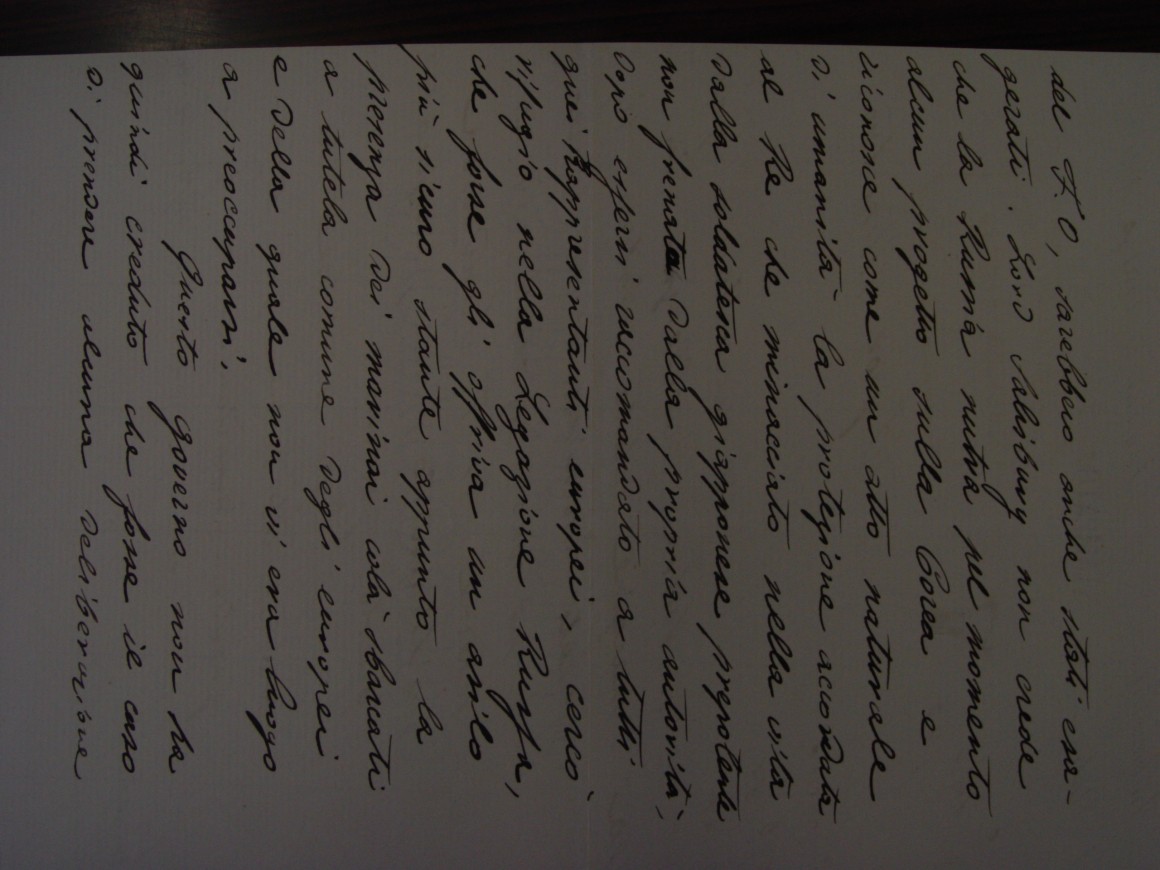 del F. O, sarebbero anche stati esa-
gerati. Lord Salisbury non crede
che la Russia nutra pel momento
alcun progetto sulla Corea e
riconosce come un atto naturale
d'umanità la protezione accordata
al Re che minacciato nella vita
dalla soldatesca giapponese prepotente
non frenata dalla propria autorità,
dopo essersi raccomandato a tutti
quei Rappresentanti europei, cercò
rifugio nella Legazione Russa,
che forse gli offriva un asilo
più sicuro stante appunto la
presenza dei marinai colà sbarcati
a tutela comune degli europei
e della quale non vi era luogo
a preoccuparsi.
Questo governo non ha
quindi creduto che fosse il caso
di prendere alcuna deliberazione